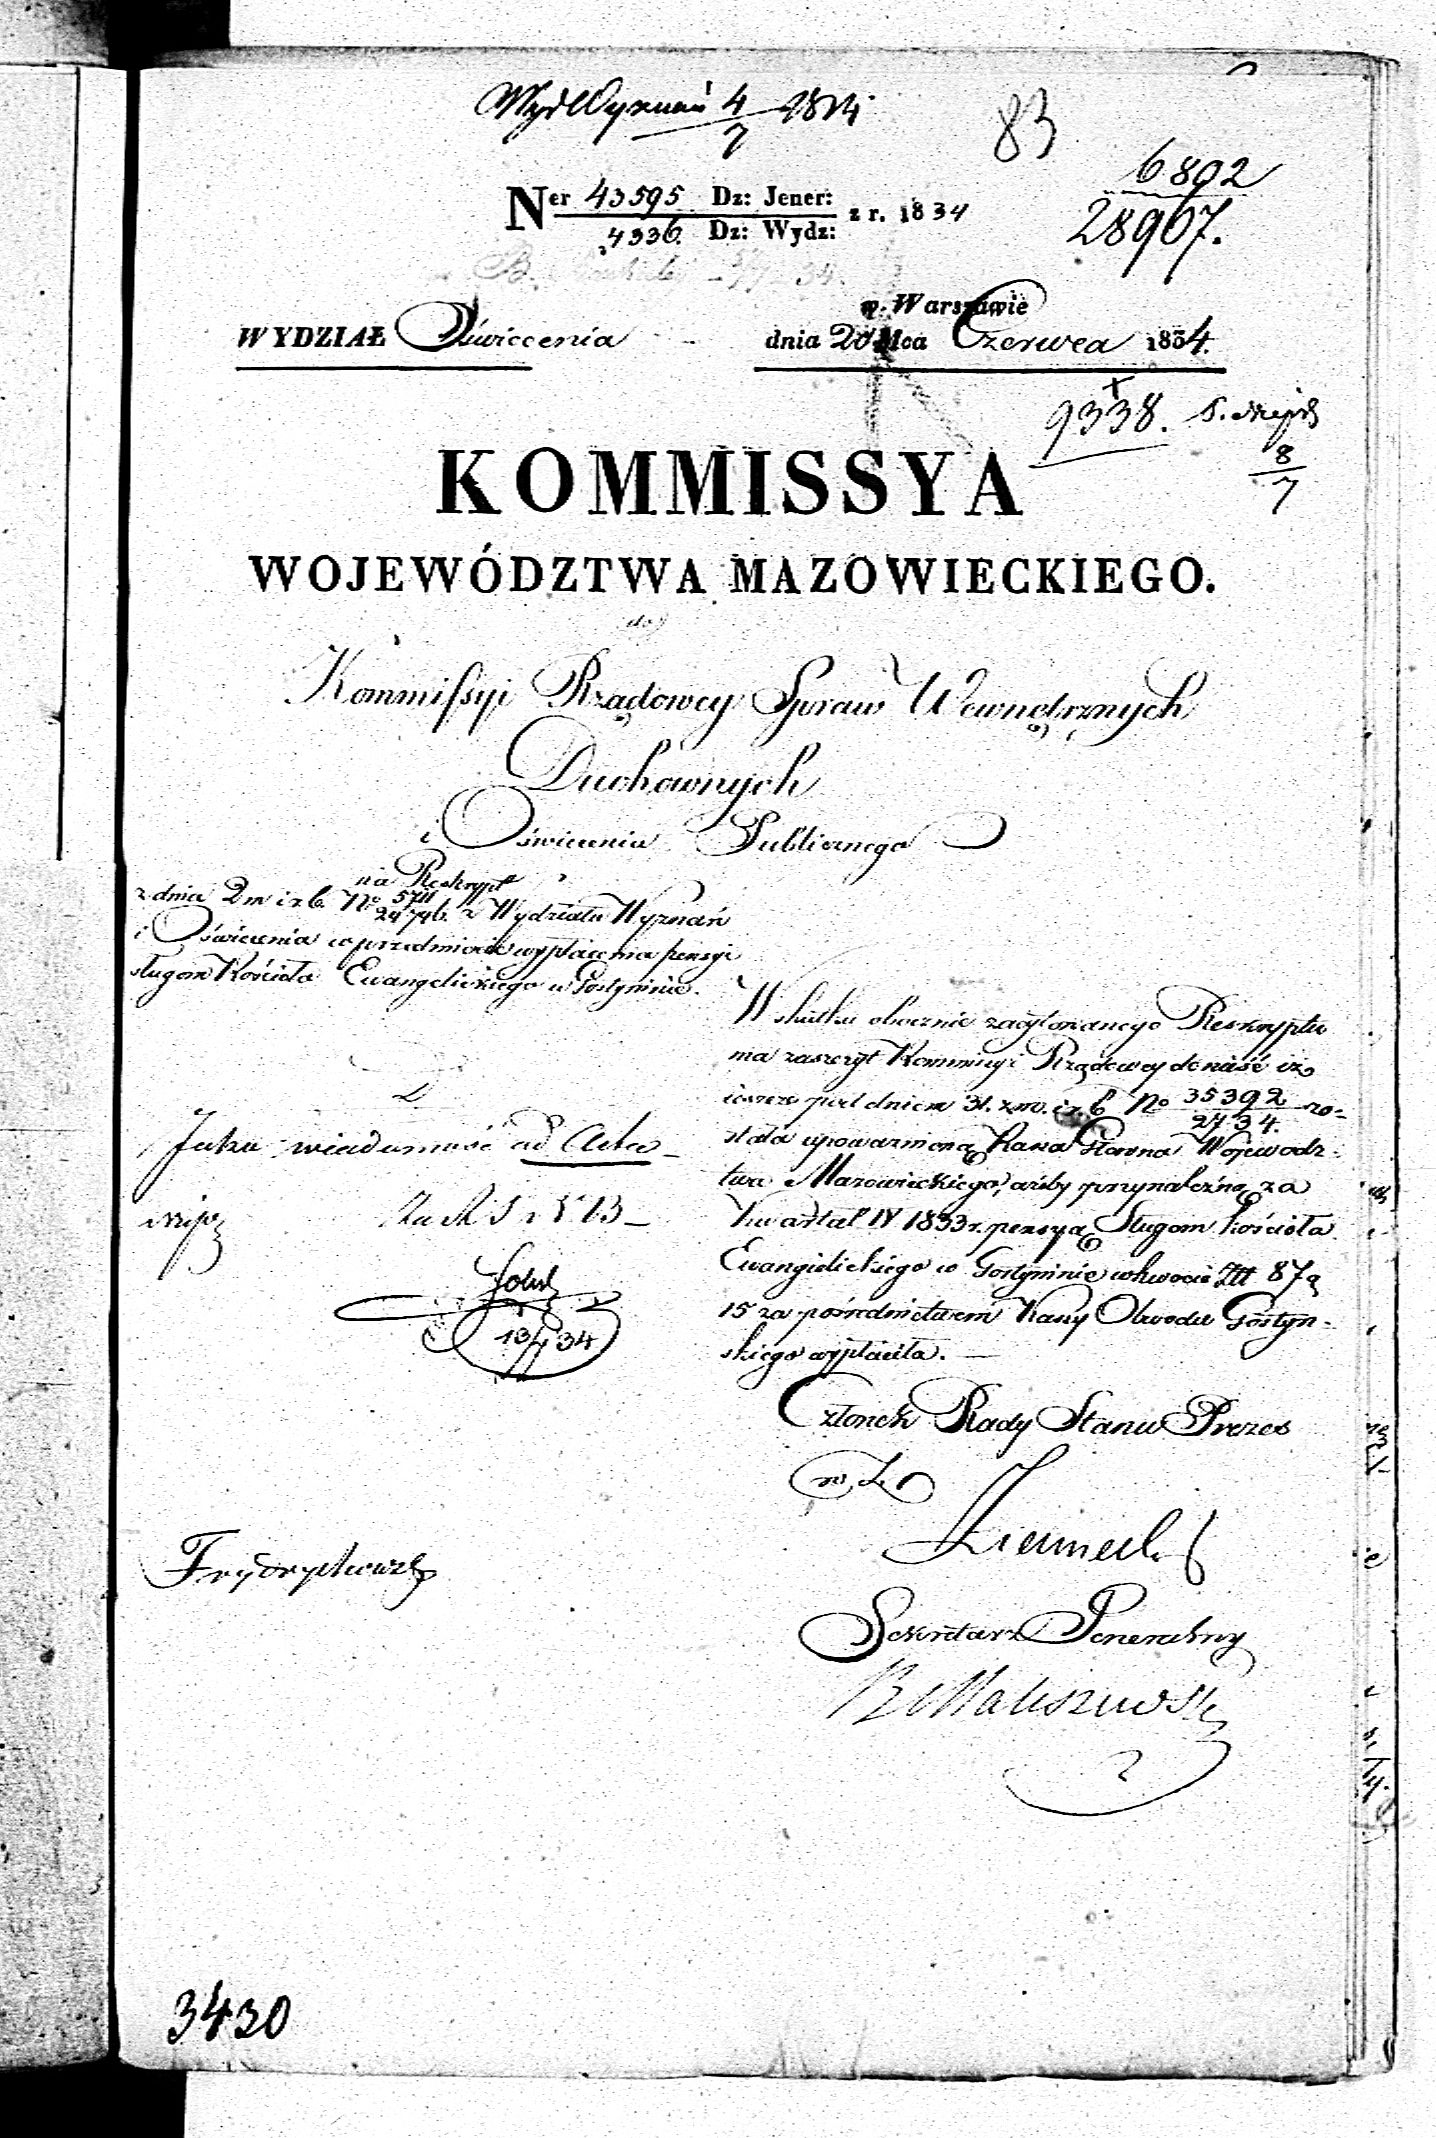 4/7 1834
83
6892
28907.
Ner 43595 Dz: Jener: z r. 1834
4336. Dz: Wydz:
w Warszawie
WYDZIAŁ Oświecenia dnia 20 Mca Czerwca 1834.
9338.
8/7
KOMMISSYA
WOJEWÓDZTWA MAZOWIECKIEGO.
do
Kommissyi Rządowey Spraw Wewnętrznych
Duchownych
i Oświecenia Publicznego
na Reskrypt
z dnia 2 m i r b. No 5711/24746. z Wydziału Wyznań
i Oświecenia w przedmiocie wypłacenia pensyi
sługom Kościoła Ewangelickiego w Gostyninie.
W skutku obocznie zacytowanego Reskryptu
ma zaszczyt Kommissyi Rządowey donieść iż
ieszcze pod dniem 31. z. m. i r. b No 35392/2734. zo-
stała upoważnioną Kassa Główna Wojewodz-
twa Mazowieckiego, ażeby przynależną za
Kwartał IV 1833 r. pensyą Sługom kościoła
Ewangielickiego w Gostyninie w kwocie Złt 87 g
15 za pośrednictwem Kassy Obwodu Gostyń-
skiego wypłaciła. —
Jako wiadomość ad Acta
13/7 34
Członek Rady Stanu Prezes
w. Z.
Sekretarz Jeneralny
3430